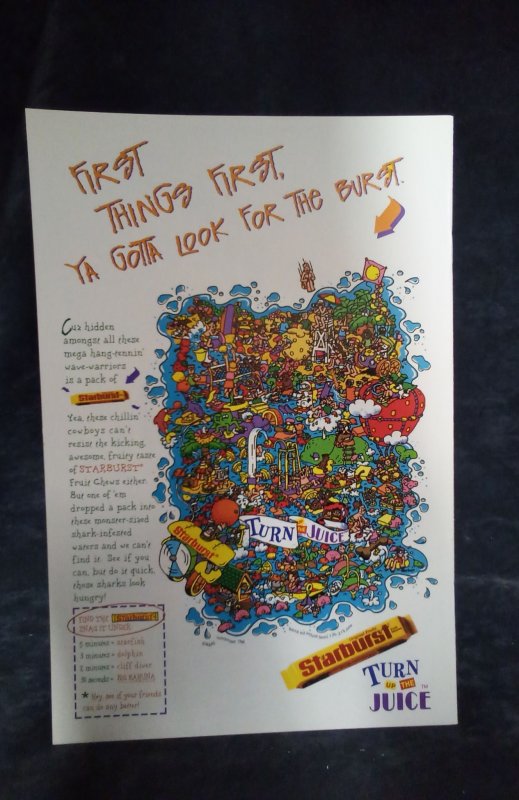 FIRST
THINGS FIRST,
YA GOTTA LOOK FOR THE BURST.
Cuz hidden
amongst all these
mega hang-tennin'
wave-warriors
is a pack of
Starburst
Yea, these chillin'
cowboys can't
resist the kicking,
awesome, fruity taste
of STARBURST®
Fruit Chews either.
But one of 'em
dropped a pack into
these monster-sized
shark-infested
waters and we can't
find it. See if you
can, but do it quick,
those sharks look
hungry!
FIND THE Starburst
SNAG IT UNDER
5 minutes = starfish
3 minutes = dolphin
2 minutes = cliff diver
30 seconds = BIG KAHUNA
★ Hey, see if your friends
can do any better!
Starburst
TURN UP THE JUICE
Starburst
TURN
UP THE
JUICE™